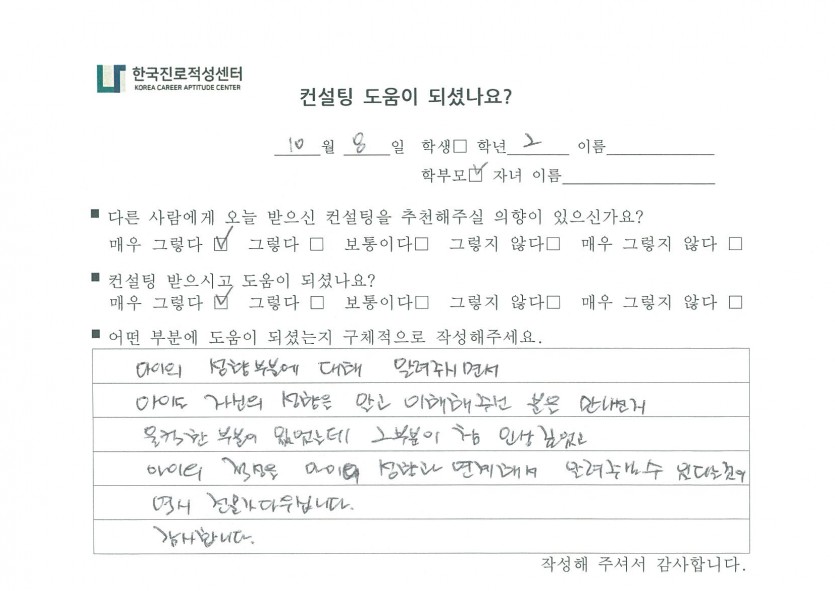 한국진로적성센터
KOREA CAREER APTITUDE CENTER
컨설팅 도움이 되셨나요?
10월 8일 학생□ 학년 2 이름
학부모☑ 자녀 이름
■ 다른 사람에게 오늘 받으신 컨설팅을 추천해주실 의향이 있으신가요?
매우 그렇다 ☑ 그렇다 □ 보통이다□ 그렇지 않다□ 매우 그렇지 않다 □
■ 컨설팅 받으시고 도움이 되셨나요?
매우 그렇다 ☑ 그렇다 □ 보통이다□ 그렇지 않다□ 매우 그렇지 않다 □
■ 어떤 부분에 도움이 되셨는지 구체적으로 작성해주세요.
아이의 성향부분에 대해 알려주시면서
아이도 자신의 성향은 알고 이해해주는 분은 만나면서
울컥한 부분이 있었는데 그부분이 참 인상 깊었고
아이의 적성을 아이의 성향과 연계해서 알려주
역시 전문가다우십니다.
감사합니다.
작성해 주셔서 감사합니다.